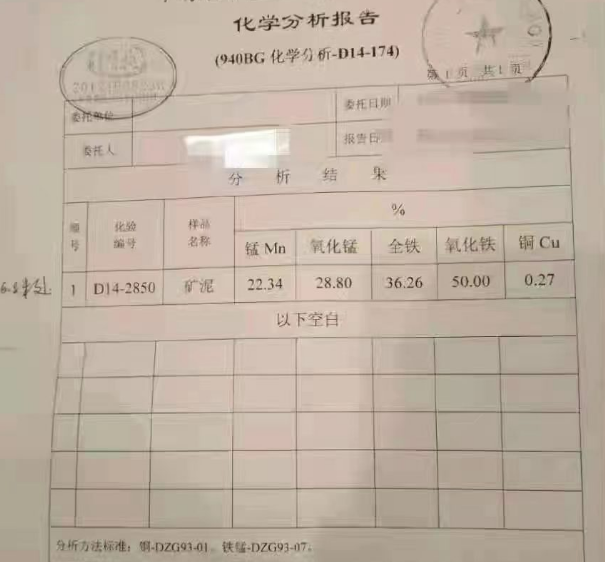 化学分析报告
(940BG 化学分析-D14-174)
第 1 页 共 1 页
委托单位
委托日期
委托人
报告日
分 析 结 果
编号 化验编号 样品名称 %
锰 Mn 氧化锰 全铁 氧化铁 铜 Cu
1 D14-2850 矿泥 22.34 28.80 36.26 50.00 0.27
以下空白
分析方法标准：铜-DZG93-01。铁锰-DZG93-07。